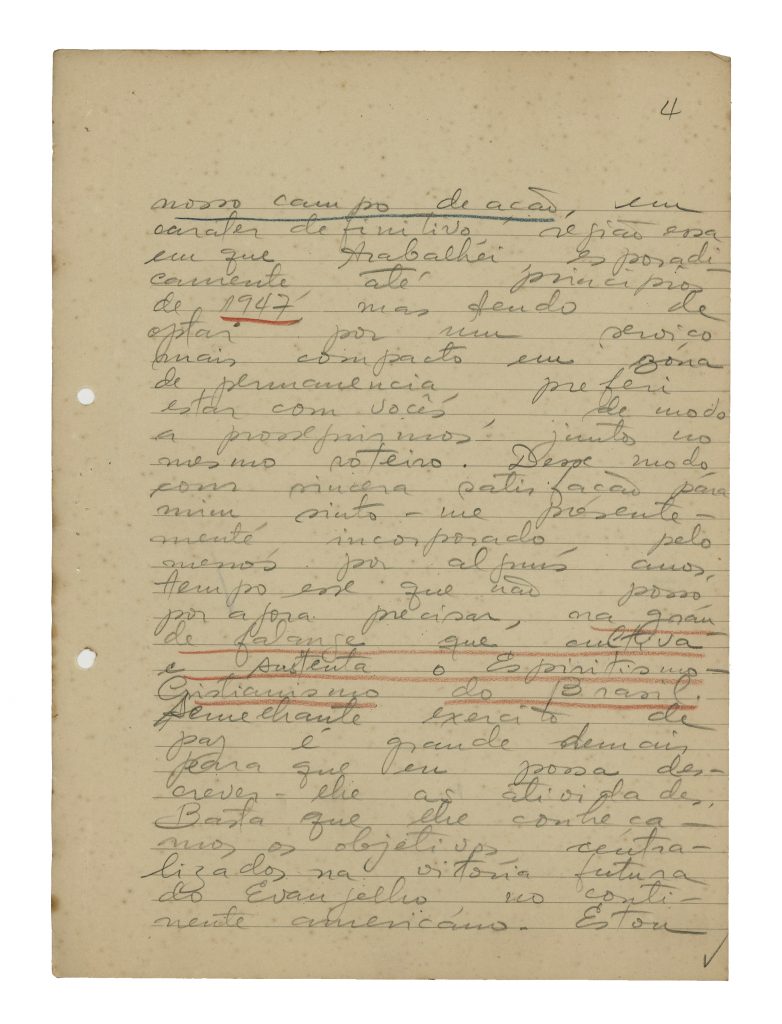 4
nosso campo de acão, em
carater definitivo, região essa
em que trabalhei, esporadi
camente até principios
de 1947, mas tendo de
optar por um serviço
mais compacto em zóna
de permanencia, preferi
estar com vocês, de modo
a prosseguirmos juntos no
mesmo roteiro. Desse modo
com sincera satisfação pára
mim sinto-me presente-
menté incorporado, pelo
menos por alguns anos,
tempo esse que não posso
por agora precisar, na gran
de falange que cultiva
e sustenta o Espiritismo-
Cristianismo do Brasil.
Semelhante exercito de
paz é grande demais
para que eu possa des-
crever-lhe as atividades.
Basta que lhe conheça-
mos os objetivos centra-
lizados na vitória futura
do Evangelho no conti-
nente americano. Estou